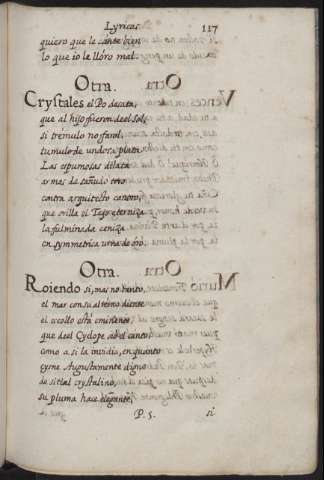 Lyricas 117
quiero que le cante bien
lo que io le lloro mal.
Otra.
Crystales el Po desata,
que al hijo fueron de el Sol,
si tremulo no farol,
tumulo de undosa plata.
Las espumosas dilata
armas de sañudo toro
contra arquitecto canoro,
que orilla el Tajo eterniza
la fulminada ceniza
en symmetrica urna de oro.
Otra.
Roiendo si, mas no tanto,
el mar con su alterno diente
el escollo está eminente
que de el Cyclope oió el canto,
como a si la invidia, en quanto
cysne Augustamente digno
de sitial crystalino,
su pluma hace elegante,
P. 5. si